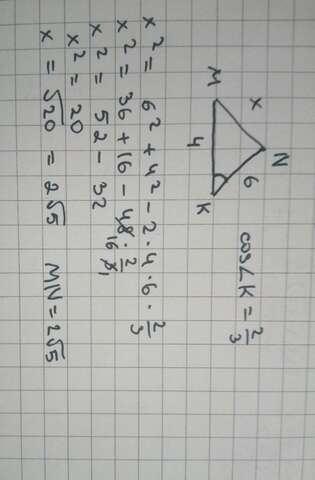 M
x
N
4
6
K
cos∠K = 2/3
x² = 6² + 4² - 2 · 4 · 6 · 2/3
x² = 36 + 16 - 48 · 2/3
16 1
x² = 52 - 32
x² = 20
x = √20 = 2√5 MN = 2√5